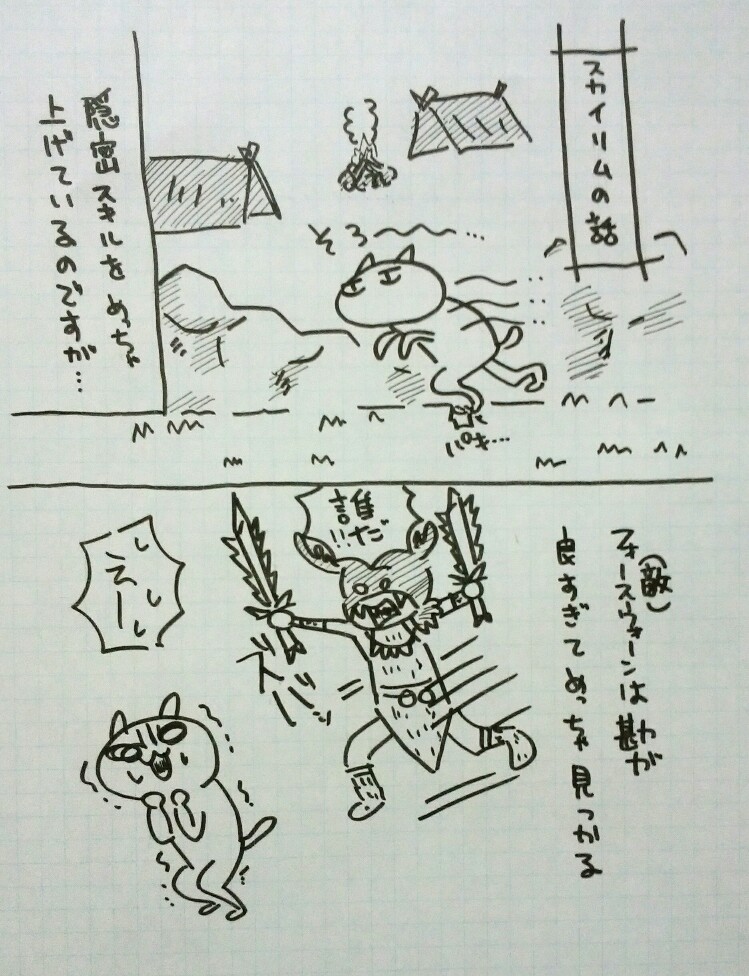 スカイリムの話
そろ〜〜…
パキ…
隠密スキルをめっちゃ
上げているのですが…
(敵)
フォースウォーンは勘が
良すぎてめっちゃ見つかる
誰だ!!